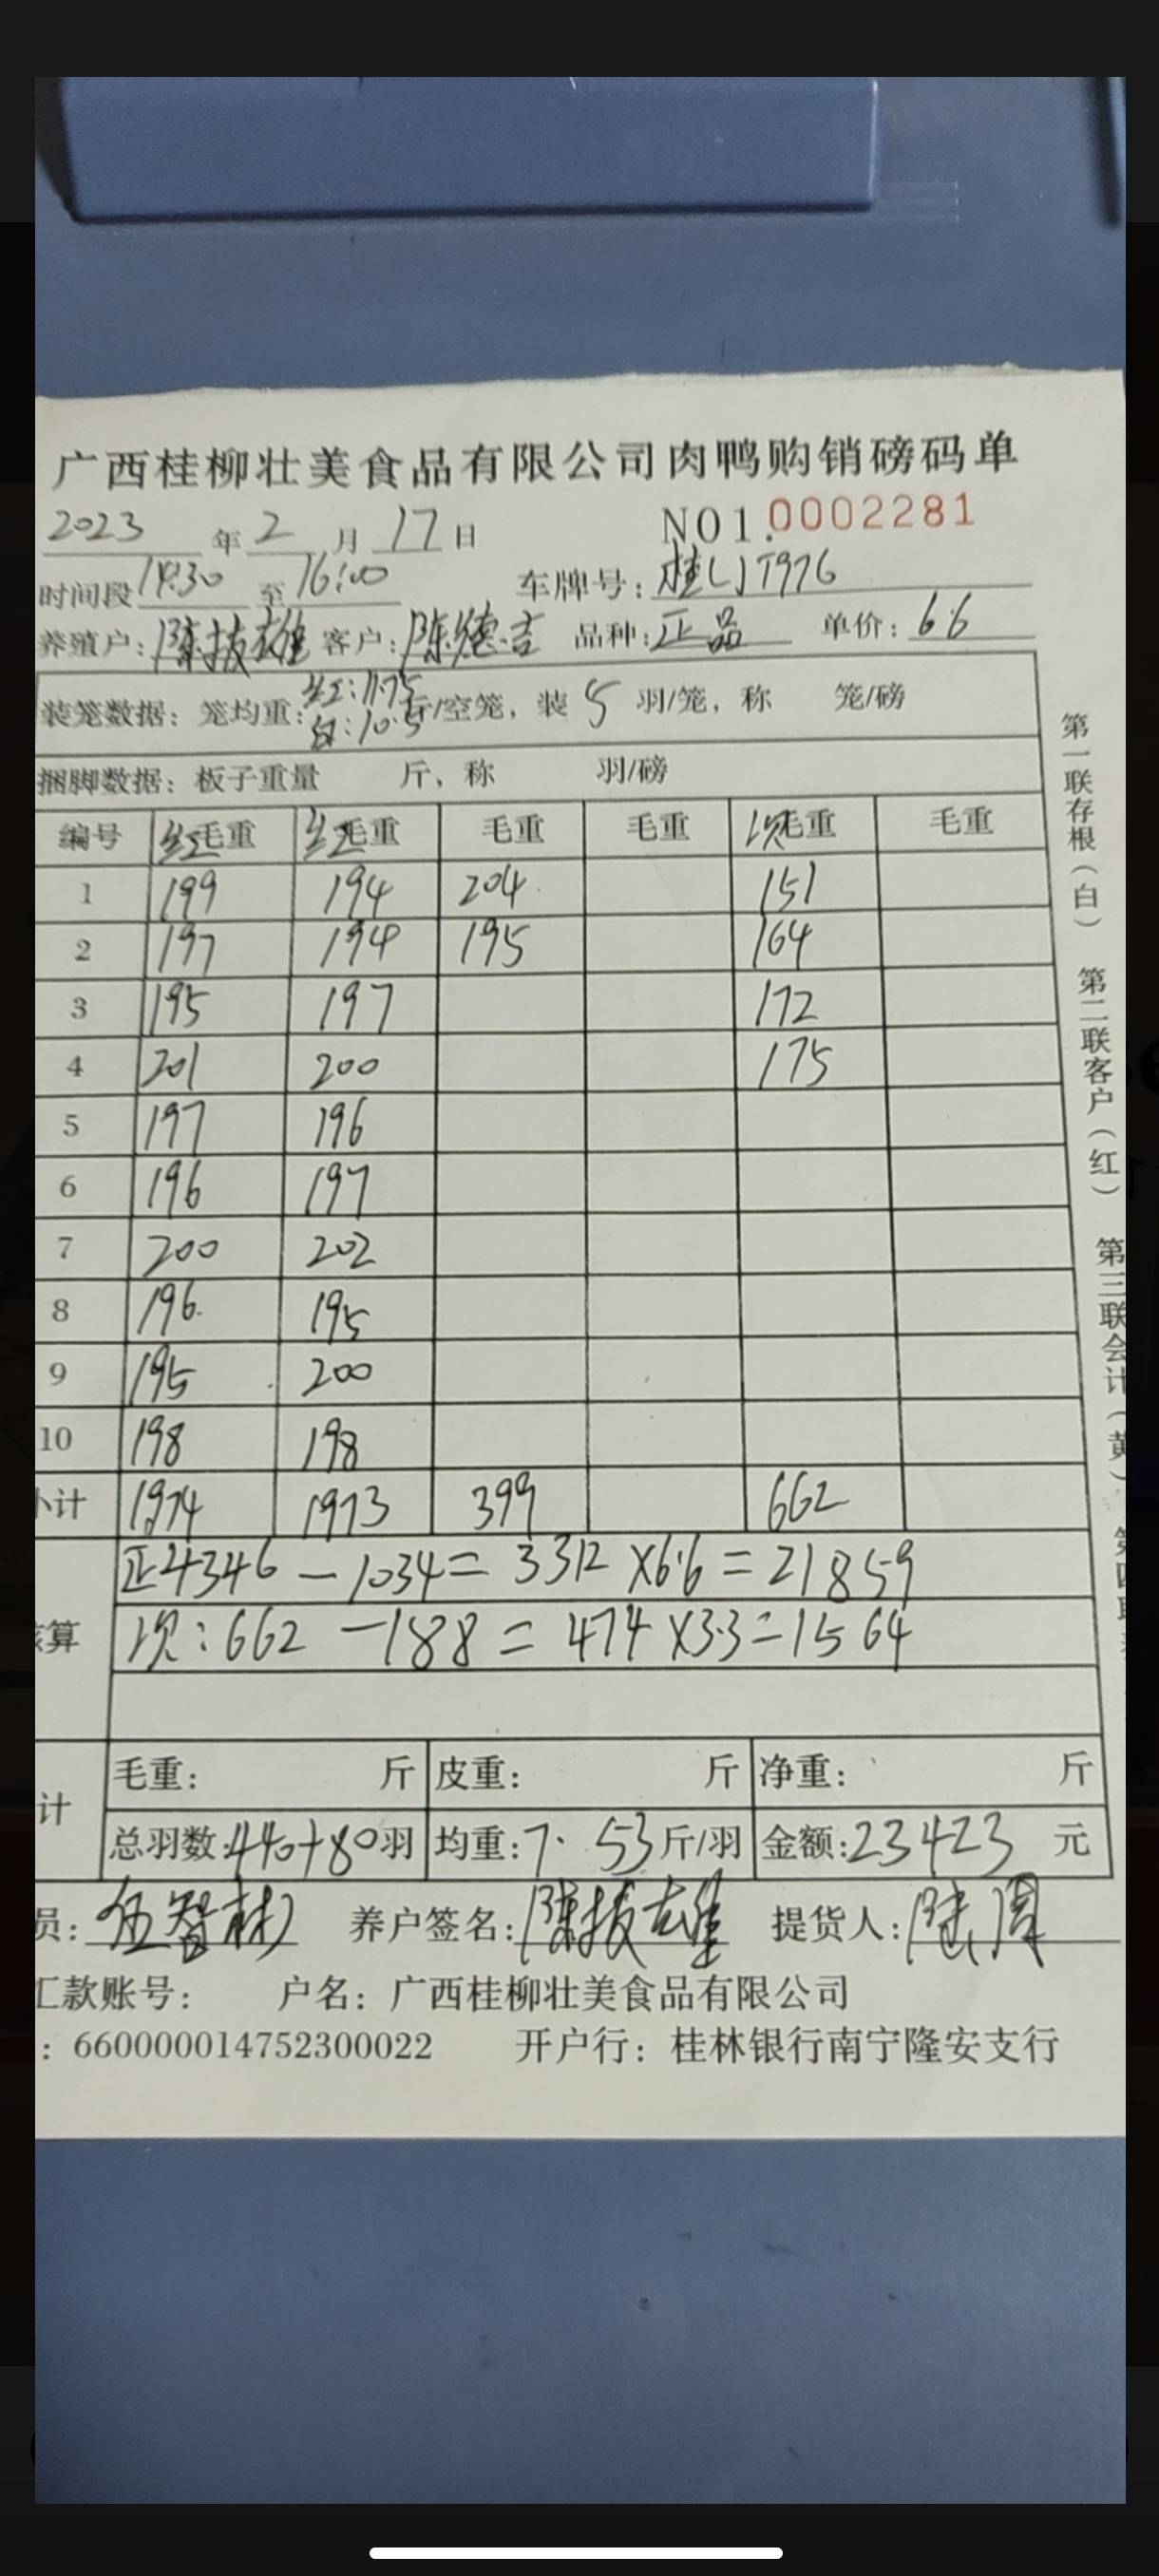 广西桂柳壮美食品有限公司肉鸭购销磅码单
2023年2月17日 NO1.0002281
时间段14:30至16:00 车牌号:桂LJT976
养殖户:陈扶雄 客户:陈德吉 品种:正品 单价:6.6
装笼数据:笼均重:红:11.75 白:10.5斤/空笼,装5羽/笼,称 笼/磅
捆脚数据:板子重量 斤,称 羽/磅
编号 红毛重 红毛重 毛重 毛重 次毛重 毛重
1 199 194 204 151
2 197 194 195 164
3 195 197 172
4 201 200 175
5 197 196
6 196 197
7 200 202
8 196 195
9 195 200
10 198 198
小计 1974 1973 399 662
正4346-1034=3312×6.6=21859
核算 次:662-188=474×3.3=1564
计 毛重: 斤 皮重: 斤 净重: 斤
总羽数:440+80羽 均重:7.53斤/羽 金额:23423元
员:伍智材 养户签名:陈扶雄 提货人:
汇款账号: 户名:广西桂柳壮美食品有限公司
:660000014752300022 开户行:桂林银行南宁隆安支行
第一联存根(白) 第二联客户(红) 第三联会计(黄) 第四联